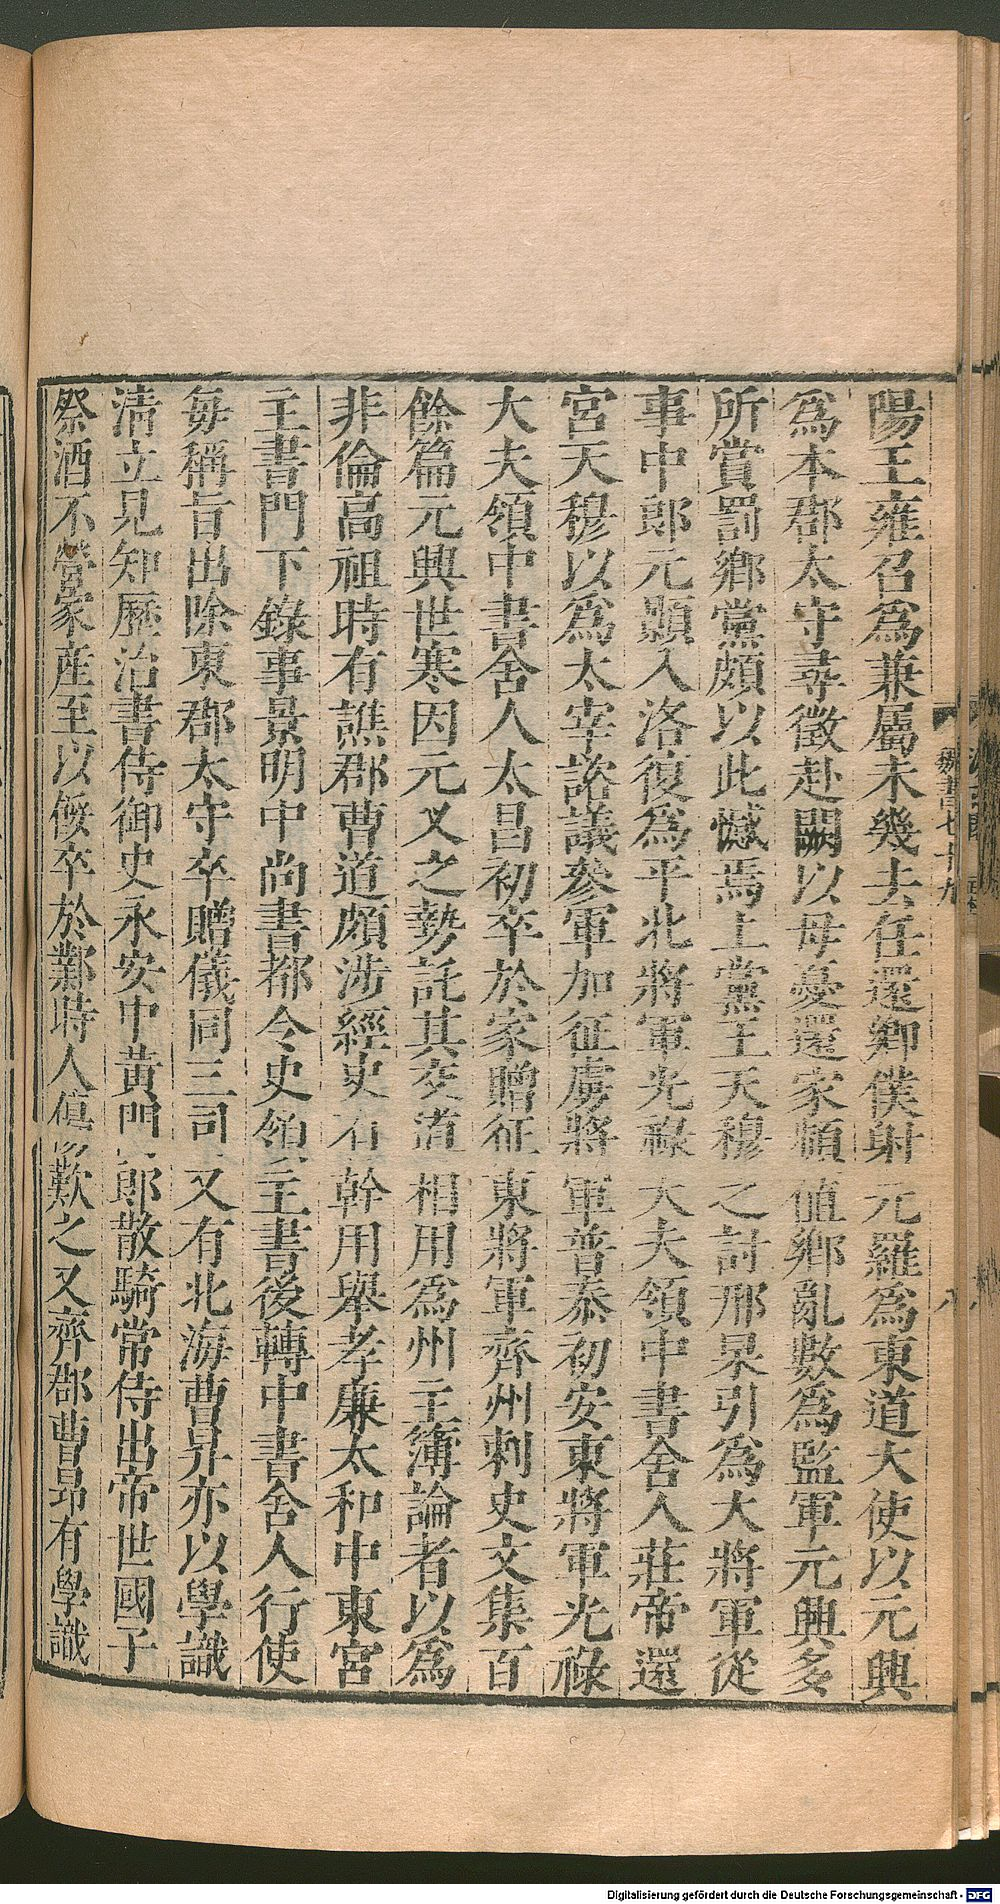 陽王雍召為兼屬未幾去任還鄉僕射元羅為東道大使以元興
為本郡太守尋徵赴闕以母憂還家頻值鄉亂數為監軍元興多
所賞罰鄉黨頗以此憾焉上黨王天穆之討邢杲引為大將軍從
事中郎元顥入洛復為平北將軍光祿大夫領中書舍人莊帝還
宮天穆以為太宰諮議參軍加征虜將軍普泰初安東將軍光祿
大夫領中書舍人太昌初卒於家贈征東將軍齊州刺史文集百
餘篇元興世寒因元乂之勢託其交道相用為州主簿論者以為
非倫高祖時有譙郡曹道頗涉經史有幹用舉孝廉太和中東宮
主書門下錄事景明中尚書都令史領主書後轉中書舍人行使
每稱旨出除東郡太守卒贈儀同三司又有北海曹昇亦以學識
清立見知歷治書侍御史永安中黃門郎散騎常侍出帝世國子
祭酒不營家產至以餒卒於鄴時人傷歎之又齊郡曹昂有學識
魏書七十九
八
Digitalisierung gefördert durch die Deutsche Forschungsgemeinschaft - DFG